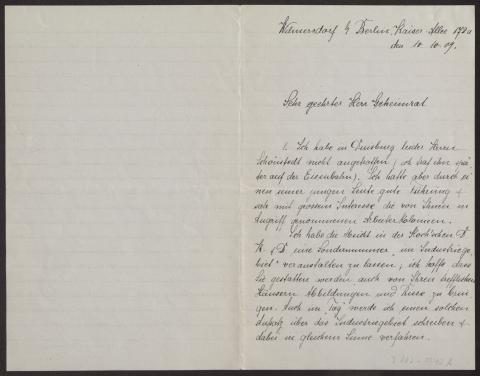 Wilmersdorf b/ Berlin, Kaiser Allee 172a
den 10. 10. 09.
Sehr geehrter Herr Geheimrat
1. Ich habe in Duisburg leider Herrn
Schönstedt nicht angetroffen (ich traf ihn spä-
ter auf der Eisenbahn). Ich hatte aber durch ei-
nen seiner jungen Leute gute Führung &
sah mit grossem Interesse die von Ihnen in
Angriff genommenen Arbeiterkolonien.
Ich habe die Absicht in der Koch'schen D.
K & D eine Sondernummer "im Industriege-
biet" veranstalten zu lassen; ich hoffe dass
Sie gestatten werden auch von Ihren trefflichen
Häusern Abbildungen und Risse zu brin-
gen. Auch im "Tag" werde ich einen solchen
Aufsatz über das Industriegebiet schreiben &
dabei in gleichem Sinne verfahren.